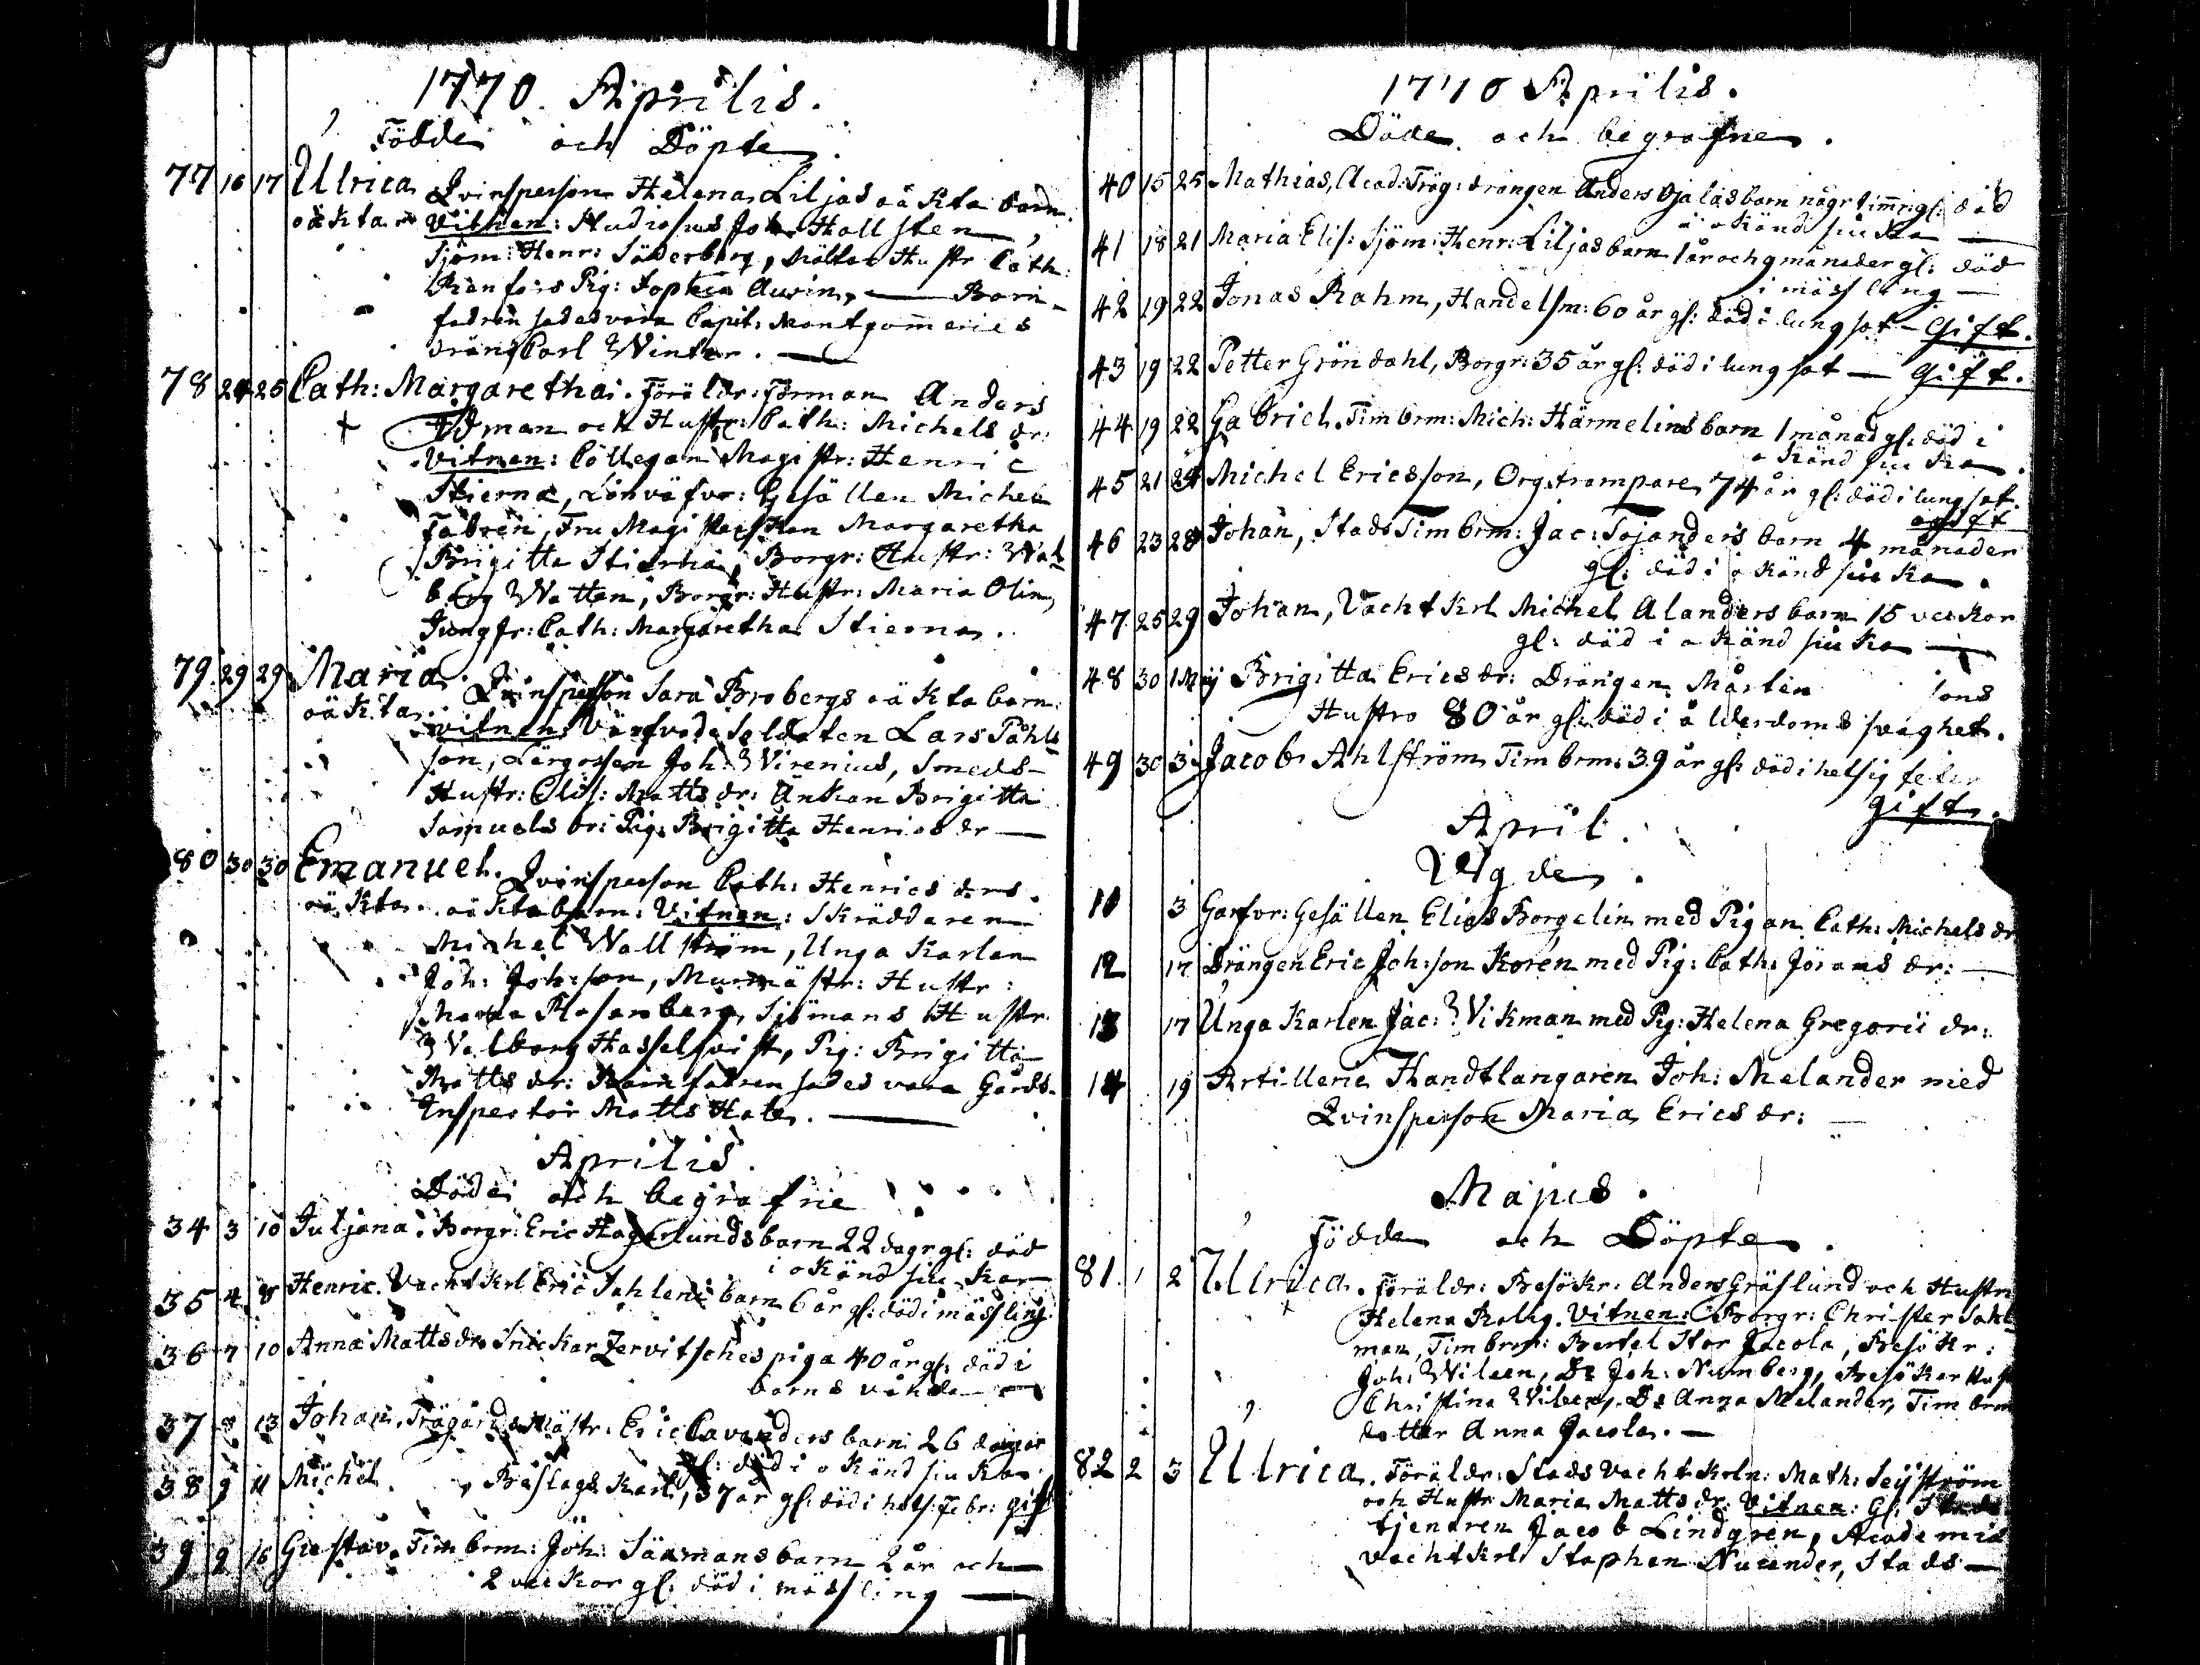 1770. Aprilis.
Födde och Döpte
77 16 17 Ulrica Qvinsperson Helena Liljas oäkta barn.
oäkta Vitnen: Studiosus Joh: Hallsten,
Sjöm: Henr: Söderberg, Hustr Cath:
Pig: Sophia Aurin, — Barn-
fadren sades vara Capit: Montgommeries
dräng Carl Winter. —
78 24 25 Cath: Margaretha. Föräldr: Förman Anders
Ödman och Hustr: Cath: Michelsdr:
Vitnen: Collegan Magistr: Henric
Stierna, Gesällen Michel
Fabren, Fru Magisterskan Margaretha
Brigitta Stierna, Borgr: Hustr: Wal
borg Watten, Borgr: Hustr: Maria Olin,
Jungfr: Cath: Margaretha Stierna.
79 29 29 Maria. Qvinsperson Sara Brobergs oäkta barn.
oäkta. vitnen: Värfvade Soldaten Lars Påhls
son, Joh: Wirenius, Smeds-
Hustr: Elis: Mattsdr: Änkan Brigitta
Samuelsdr: Pig: Brigitta Henricsdr —
80 30 30 Emanuel. Qvinsperson Cath: Henricsdrs.
oäkta. oäkta barn: Vitnen: Skräddaren
Michel Wallström, Unga Karlen
Joh: Joh:son, Murmästr: Hustr:
Maria Rosenberg, Sjömans Hustr
Walborg Hasselqvist, Pig: Brigitta
Mattsdr: Barnfadren sades vara Gårds-
Inspector Matts —
Aprilis.
Döde och begrafne
34 3 10 Juljana. Borgr: Eric Hagerlunds barn 22 dagr gl: död
i okänd siuka
35 4 8 Henric. Vachtkrl Eric Sahlens barn 6 år gl: död i mässling
36 7 10 Anna Mattsdr Snickar Zervitsches piga 40 år gl: död i
barns vånda —
37 8 13 Johan. Trägårdsmästr: Eric Cavanders barn 26 dagar
gl: död i okänd siuka
38 9 11 Michel. Beslags Karl, 37 år gl: död i hets: febr: gift
39 9 16 Gustav. Timbrm: Joh: Säxmans barn 2 år och
2 veckor gl: död i mässling —
1770 Aprilis.
Döde och begrafne.
40 15 25 Mathias, Acad: Träg: drängen Anders Ojalas barn någr timr: gl: död
i okänd siuka —
41 18 21 Maria Elis: Sjöm: Henr: Liljas barn 1 år och 9 månader gl: död
i mässling —
42 19 22 Jonas Rahm, Handelsm: 60 år gl: död i lungsot — Gift.
43 19 22 Petter Gröndahl, Borgr: 35 år gl: död i lungsot — Gift.
44 19 22 Gabriel. Timbrm: Mich: Härmelins barn 1 månad gl: död i
okänd siuka.
45 21 24 Michel Ericsson, Orgtrampare 74 år gl: död i lungsot
ogift
46 23 28 Johan, Stads Timbrm: Jac: Sojanders barn 4 månader
gl: död i okänd siuka.
47 25 29 Johan, Vachtkrl Michel Alanders barn 15 veckor
gl: död i okänd siuka —
48 30 1 Mj Brigitta Ericsdr: Drängen Mårten sons
Hustro 80 år gl: död i ålderdoms svaghet.
49 30 3 Jacob Ahlström Timbrm: 39 år gl: död i hetsig feber
gift.
April.
Wigde.
11 3 Garfvr: Gesällen Elias Borgelin med Pigan Cath: Michelsdr
12 17 Drängen Eric Joh:son Korén med Pig: Cath: Jöransdr: —
13 17 Unga Karlen Jac: Wikman med Pig: Helena Gregorii dr:
14 19 Artillerie Handtlangaren Joh: Melander med
Qvinsperson Maria Ericsdr: —
Majus.
Födde och Döpte.
81 1 2 Ulrica. Föräldr: Besökr: Anders Gräslund och Hustru
Helena Vitnen: Borgr: Christer Sahl
man, Timbrm: Bertel Stor Jacola, Besökr:
Joh: Wileen, Dr Joh: Numberg, Besökar Hust
Christina Wiberg, Dr Anna Melander, Timbrm
dotter Anna Jacola. —
82 2 3 Ulrica. Föräldr: Stads Vachtkrln: Math: Seijström
och Hustr Maria Mattsdr: Vitnen: Gl: Stads
tjenaren Jacob Lindgren, Academie
vachtkrl Staphan Nucander, Stads —